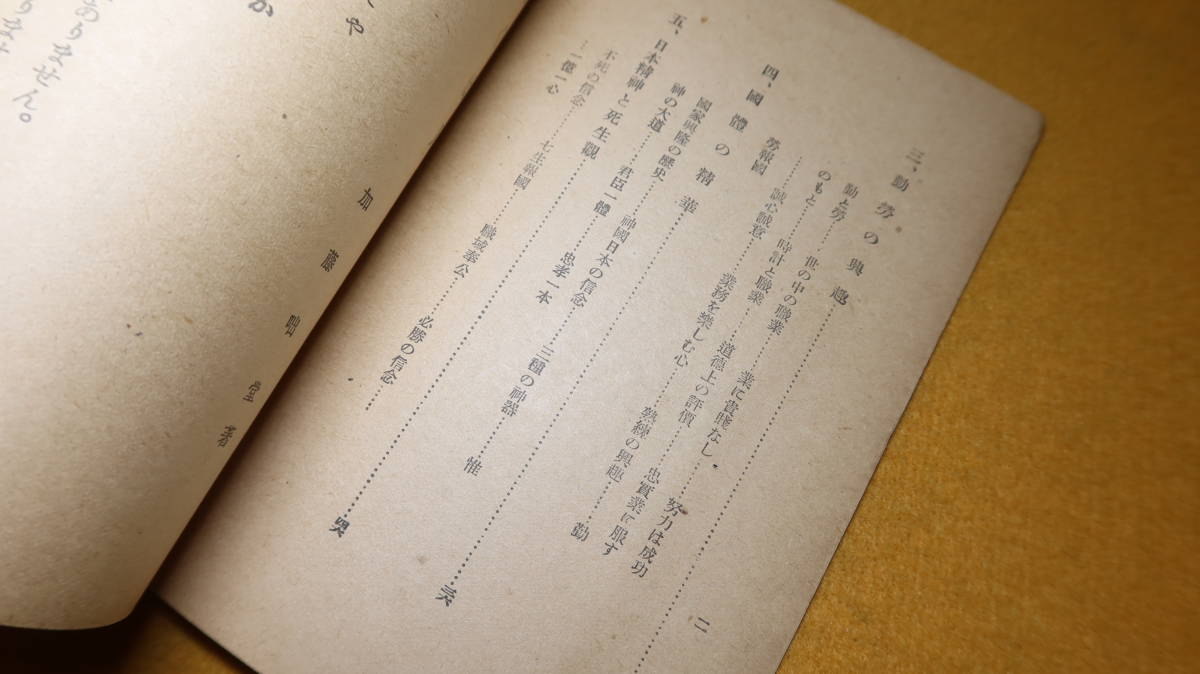 二
三、勤勞の興趣
勤と勞……世の中の職業……業に貴賤なし……努力は成功
のもと……時計と職業……道德上の評價……忠實業に服す
……誠心誠意……業務を樂しむ心……熟練の興趣……勤
勞報國
四、國體の精華……三六
國家興隆の歷史……神國日本の信念……三種の神器……惟
神の大道……君臣一體……忠孝一本
五、日本精神と死生觀……四六
不死の信念……七生報國……職域奉公……必勝の信念……
…一億一心
や
か
ありません。
加藤咄堂著